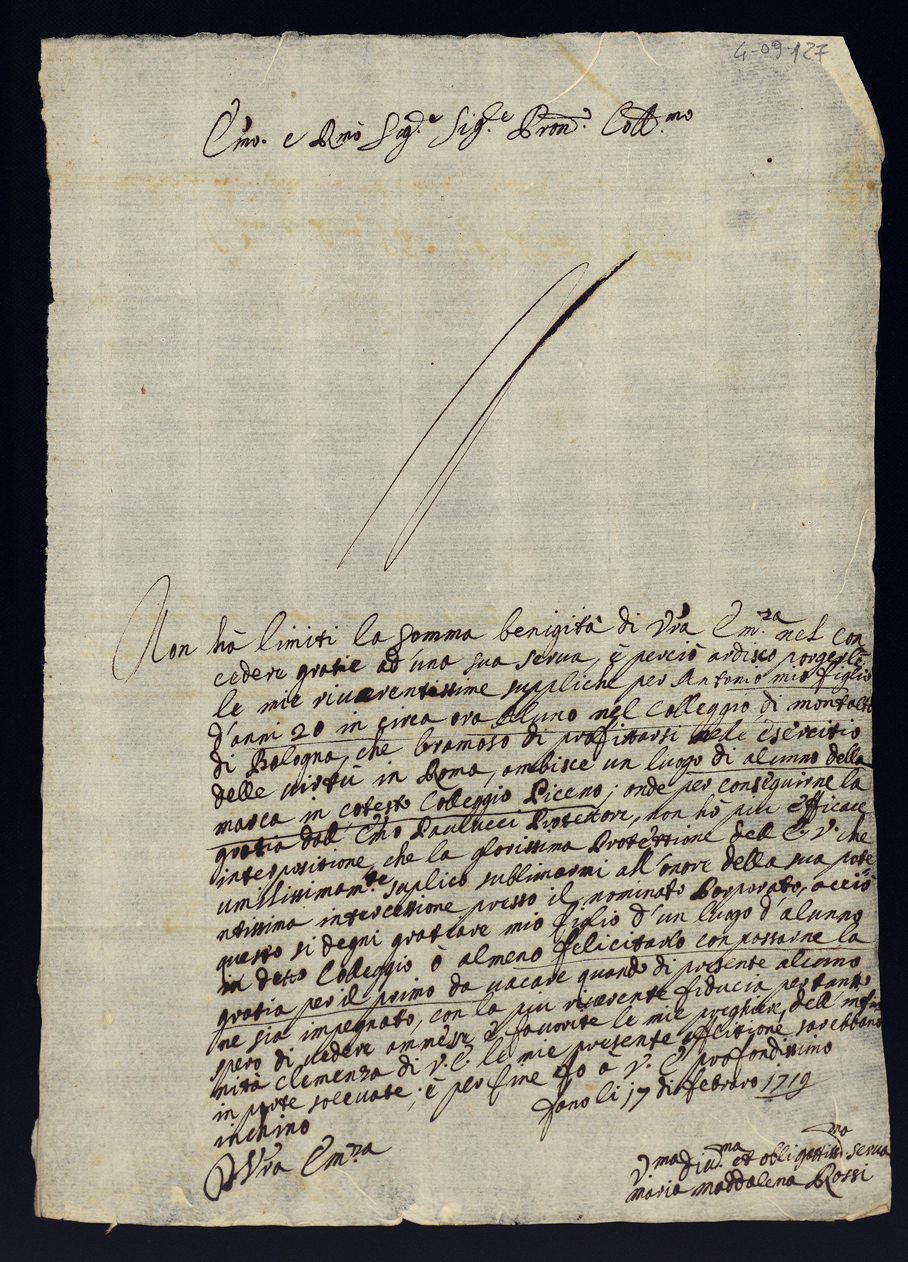 4-09-127
Emo. e Rmo Sig.e Sig.e Pron. Coll.mo
Non hà limiti la somma benigità di Vra Em.za nel con
cedere gratie ad'una sua serva, è perciò ardisco porgerle
le mie riverentissime suppliche per Antonio mio figlio
d'anni 20 in circa ora Aluno nel Colleggio di montalto
di Bologna, che bramoso di profittarsi nele esercitio
delle virtù in Roma, ambisce un luogo di alunno della
marca in cotesto Colleggio Piceno; onde per conseguirne la
gratia dall'Emo Paulucci Protettore, non hò piu efficace
interpositione, che la glorissima Protettione dell E. V. che
umilissimam.te suplico sublimarmi all'onore della sua pote
ntissima intercessione presso il nominato Porporato, acciò
questo si degni gratiare mio figlio d'un luogo d'alunno
in detto Colleggio ò almeno felicitarlo con passarne la
gratia per il primo da vacare quando di presente alcuno
ne sia impegnato, con la piu riverente fiducia pertanto
spero di vedere ammèsse è favorite le mie preghiere, dell'infi
nità clemenza di V. E. le mie presente afflitione sarebbano
in parte sollevate; è per fine fo à V. E. profondissimo
inchino
Fano li 17 di febraro 1719
D Vra Em.za
V.ma Div.ma et obligatissi.ma serva
maria maddalena Rossi